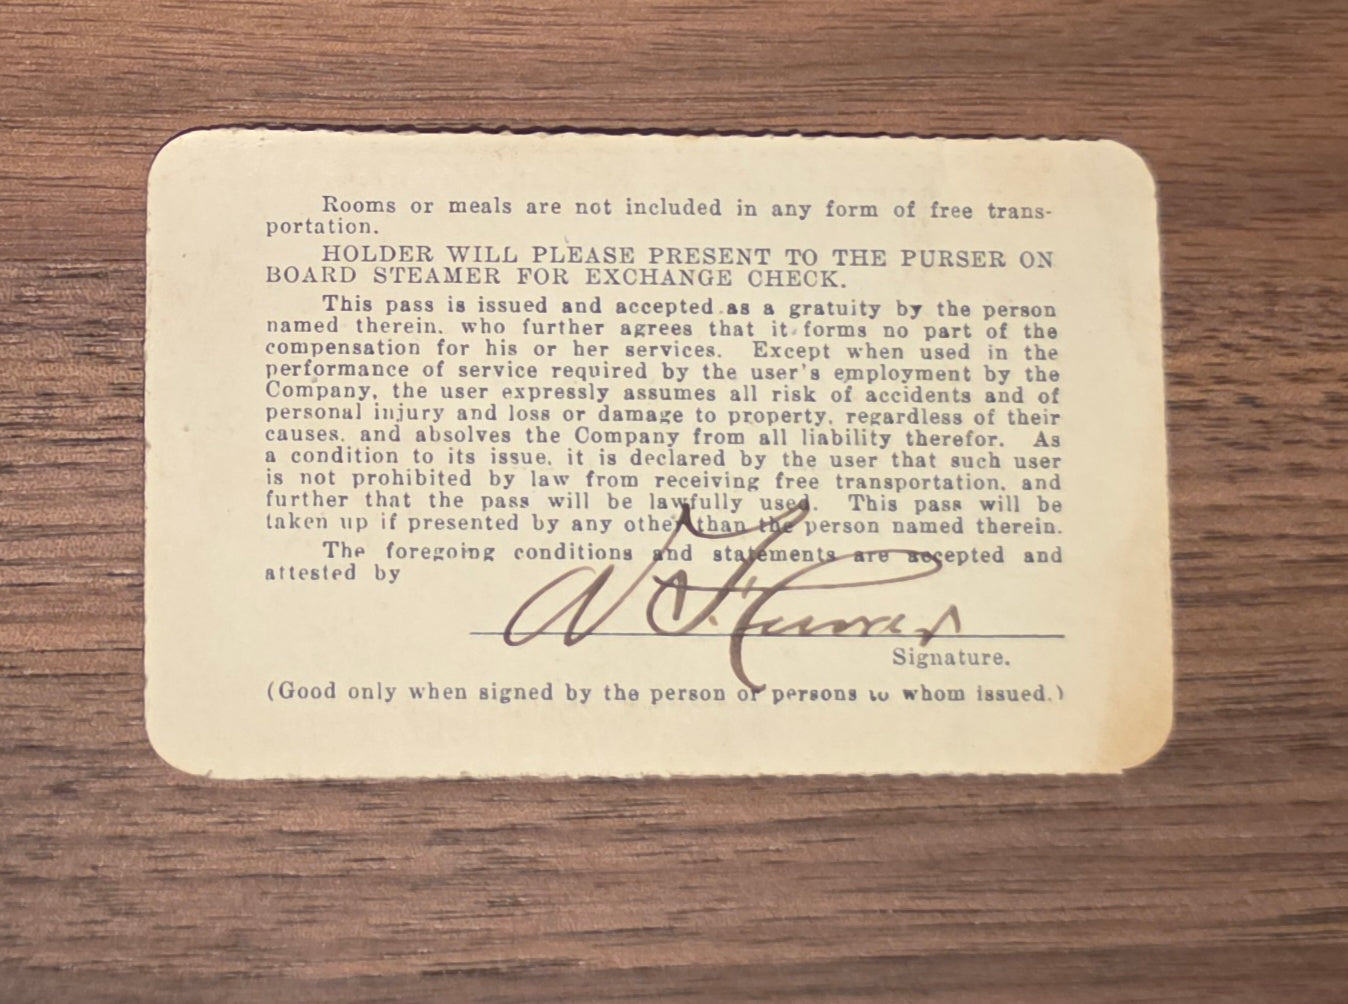 Rooms or meals are not included in any form of free trans-
portation.
HOLDER WILL PLEASE PRESENT TO THE PURSER ON
BOARD STEAMER FOR EXCHANGE CHECK.
This pass is issued and accepted as a gratuity by the person
named therein, who further agrees that it forms no part of the
compensation for his or her services. Except when used in the
performance of service required by the user's employment by the
Company, the user expressly assumes all risk of accidents and of
personal injury and loss or damage to property, regardless of their
causes, and absolves the Company from all liability therefor. As
a condition to its issue, it is declared by the user that such user
is not prohibited by law from receiving free transportation, and
further that the pass will be lawfully used. This pass will be
taken up if presented by any other than the person named therein.
The foregoing conditions and statements are accepted and
attested by
Signature.
(Good only when signed by the person or persons to whom issued.)